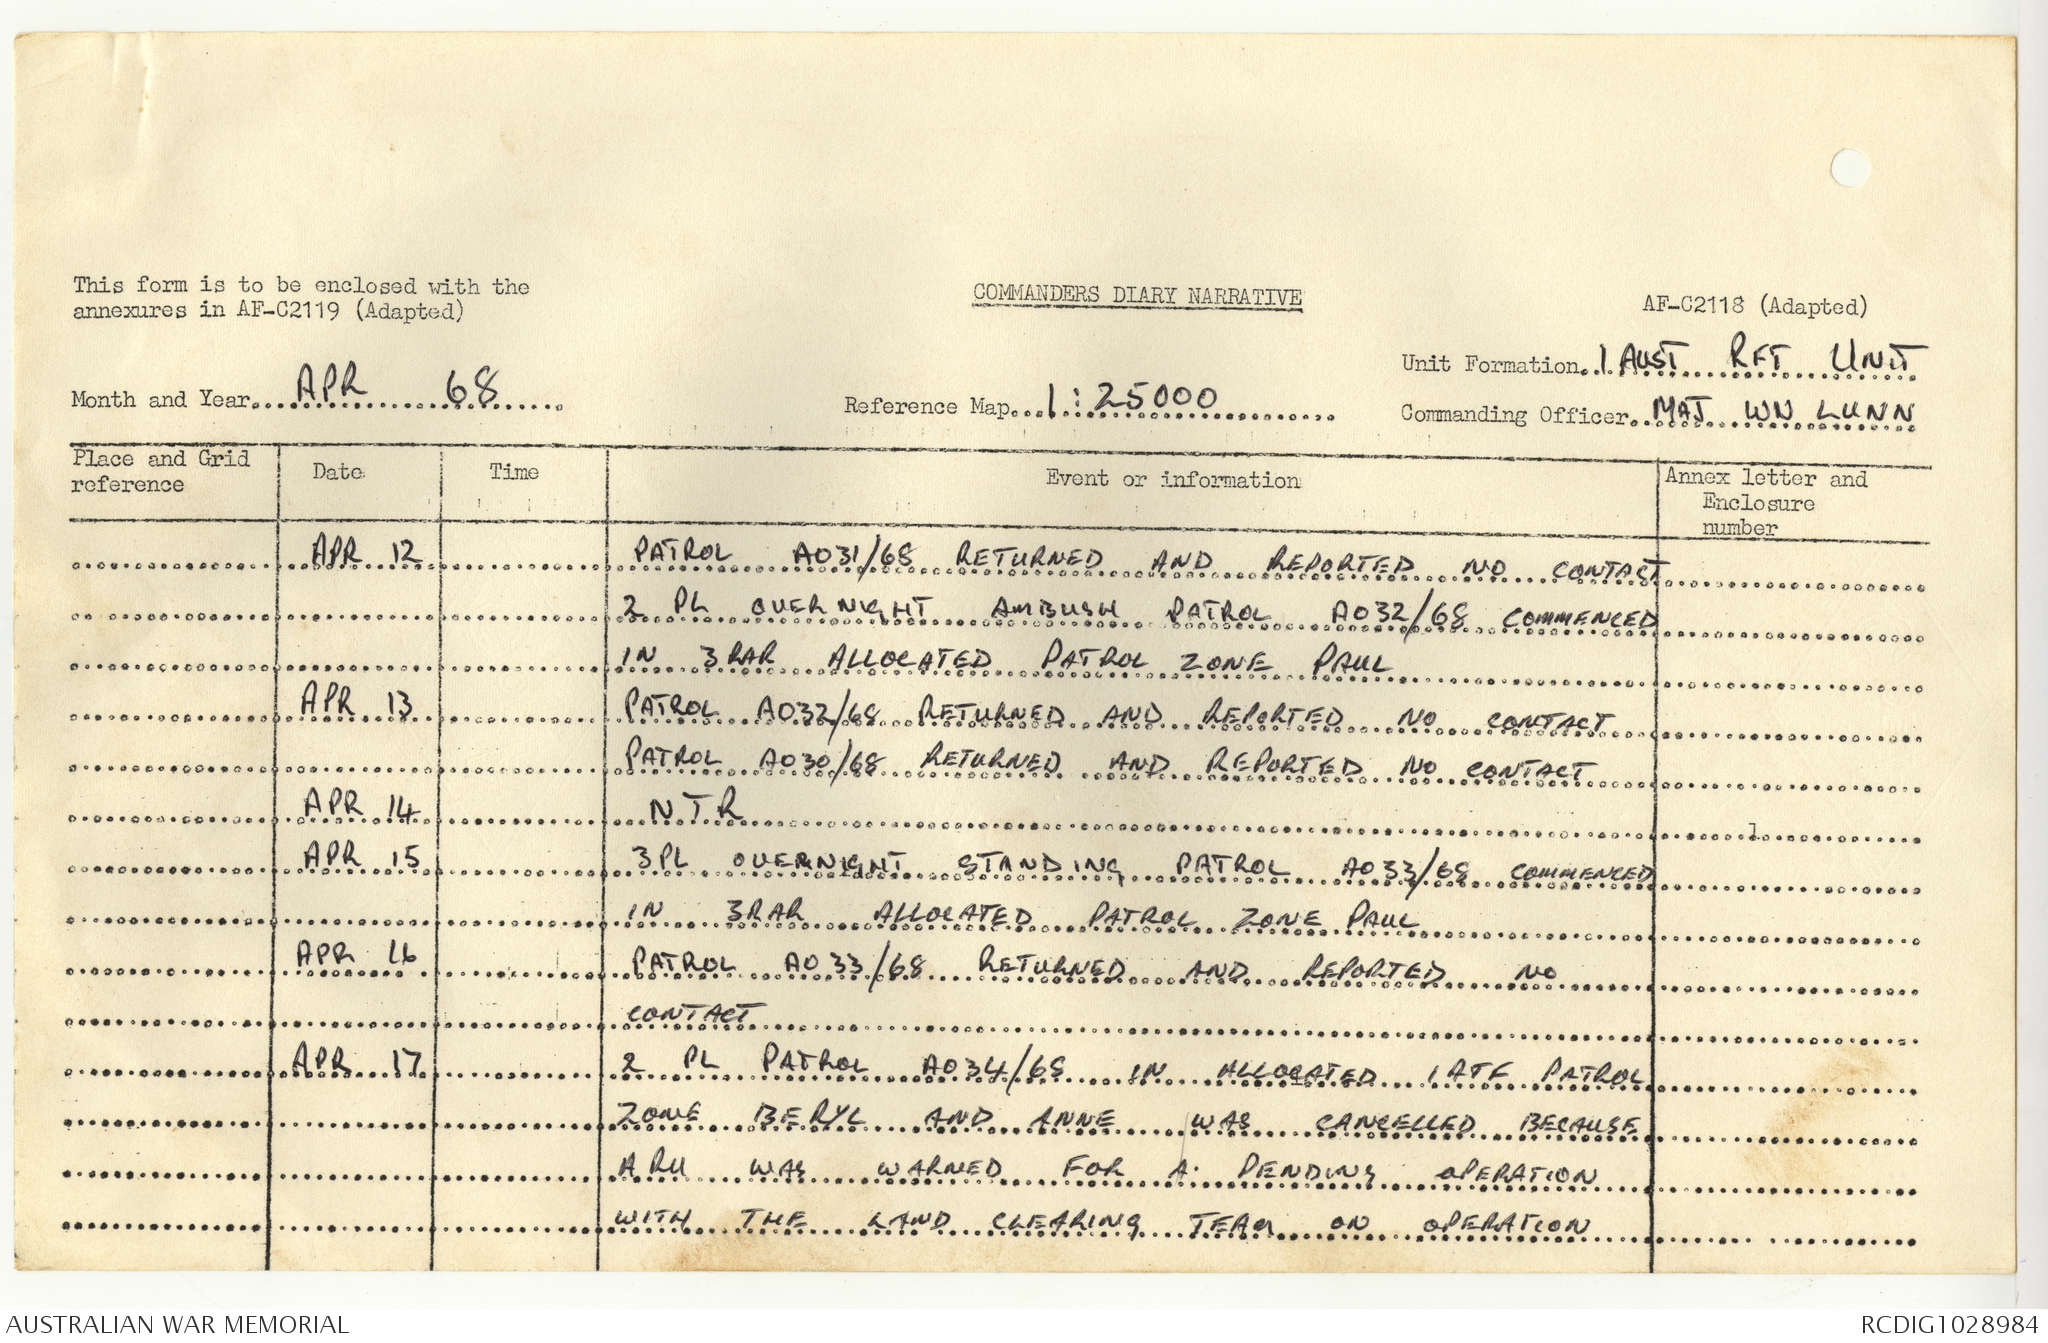 This form is to be enclosed with the
annexures in AF-C2119 (Adapted)
COMMANDERS DIARY NARRATIVE
AF-C2118 (Adapted)
Unit Formation 1 AUST RFT UNIT
Month and Year APR 68
Reference Map 1:25000
Commanding Officer MAJ WN LUNN
Place and Grid reference
Date
Time
Event or information
Annex letter and Enclosure number
APR 12 PATROL A031/68 RETURNED AND REPORTED NO CONTACT
2 PL OVERNIGHT AMBUSH PATROL A032/68 COMMENCED
IN 3RAR ALLOCATED PATROL ZONE PAUL
APR 13 PATROL A032/68 RETURNED AND REPORTED NO CONTACT
PATROL A030/68 RETURNED AND REPORTED NO CONTACT
APR 14 NTR
APR 15 3PL OVERNIGHT STANDING PATROL A033/68 COMMENCED
IN 3RAR ALLOCATED PATROL ZONE PAUL
APR 16 PATROL A033/68 RETURNED AND REPORTED NO
CONTACT
APR 17 2 PL PATROL A034/68 IN ALLOCATED 1ATF PATROL
ZONE BERYL AND ANNE WAS CANCELLED BECAUSE
ARU WAS WARNED FOR A PENDING OPERATION
WITH THE LAND CLEARING TEAM ON OPERATION
AUSTRALIAN WAR MEMORIAL
RCDIG1028984